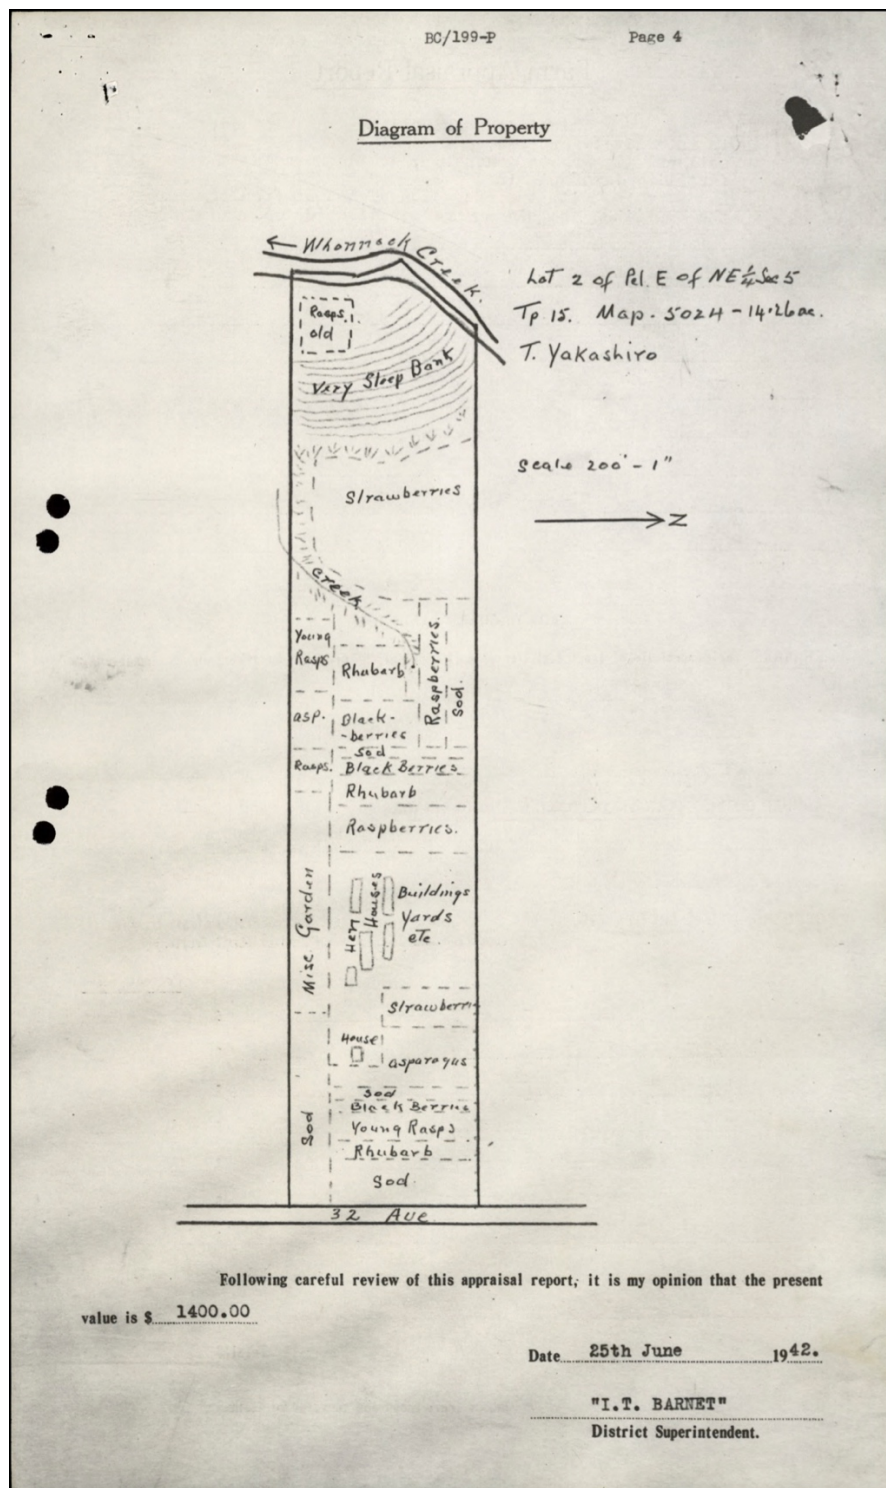 BC/199-P Page 4
Diagram of Property
← Whonnock Creek.
Lot 2 of Pcl. E of NE¼ Sec 5
Tp 15. Map. 5024 - 14.26 ac.
T. Yakashiro
Rasps.
old
Very Steep Bank
Scale 200' - 1"
Strawberries
N
Creek
Young
Rasps
Rhubarb
Raspberries.
Sod.
asp.
Black-
-berries
Sod
Rasps.
Black Berries
Rhubarb
Raspberries.
Misc Garden
Hen Houses
Buildings
Yards
etc.
Strawberri
House
asparagus
Sod
Sod
Black Berries
Young Rasps
Rhubarb
Sod
32 Ave
Following careful review of this appraisal report, it is my opinion that the present
value is $ 1400.00
Date 25th June 1942.
"I.T. BARNET"
District Superintendent.